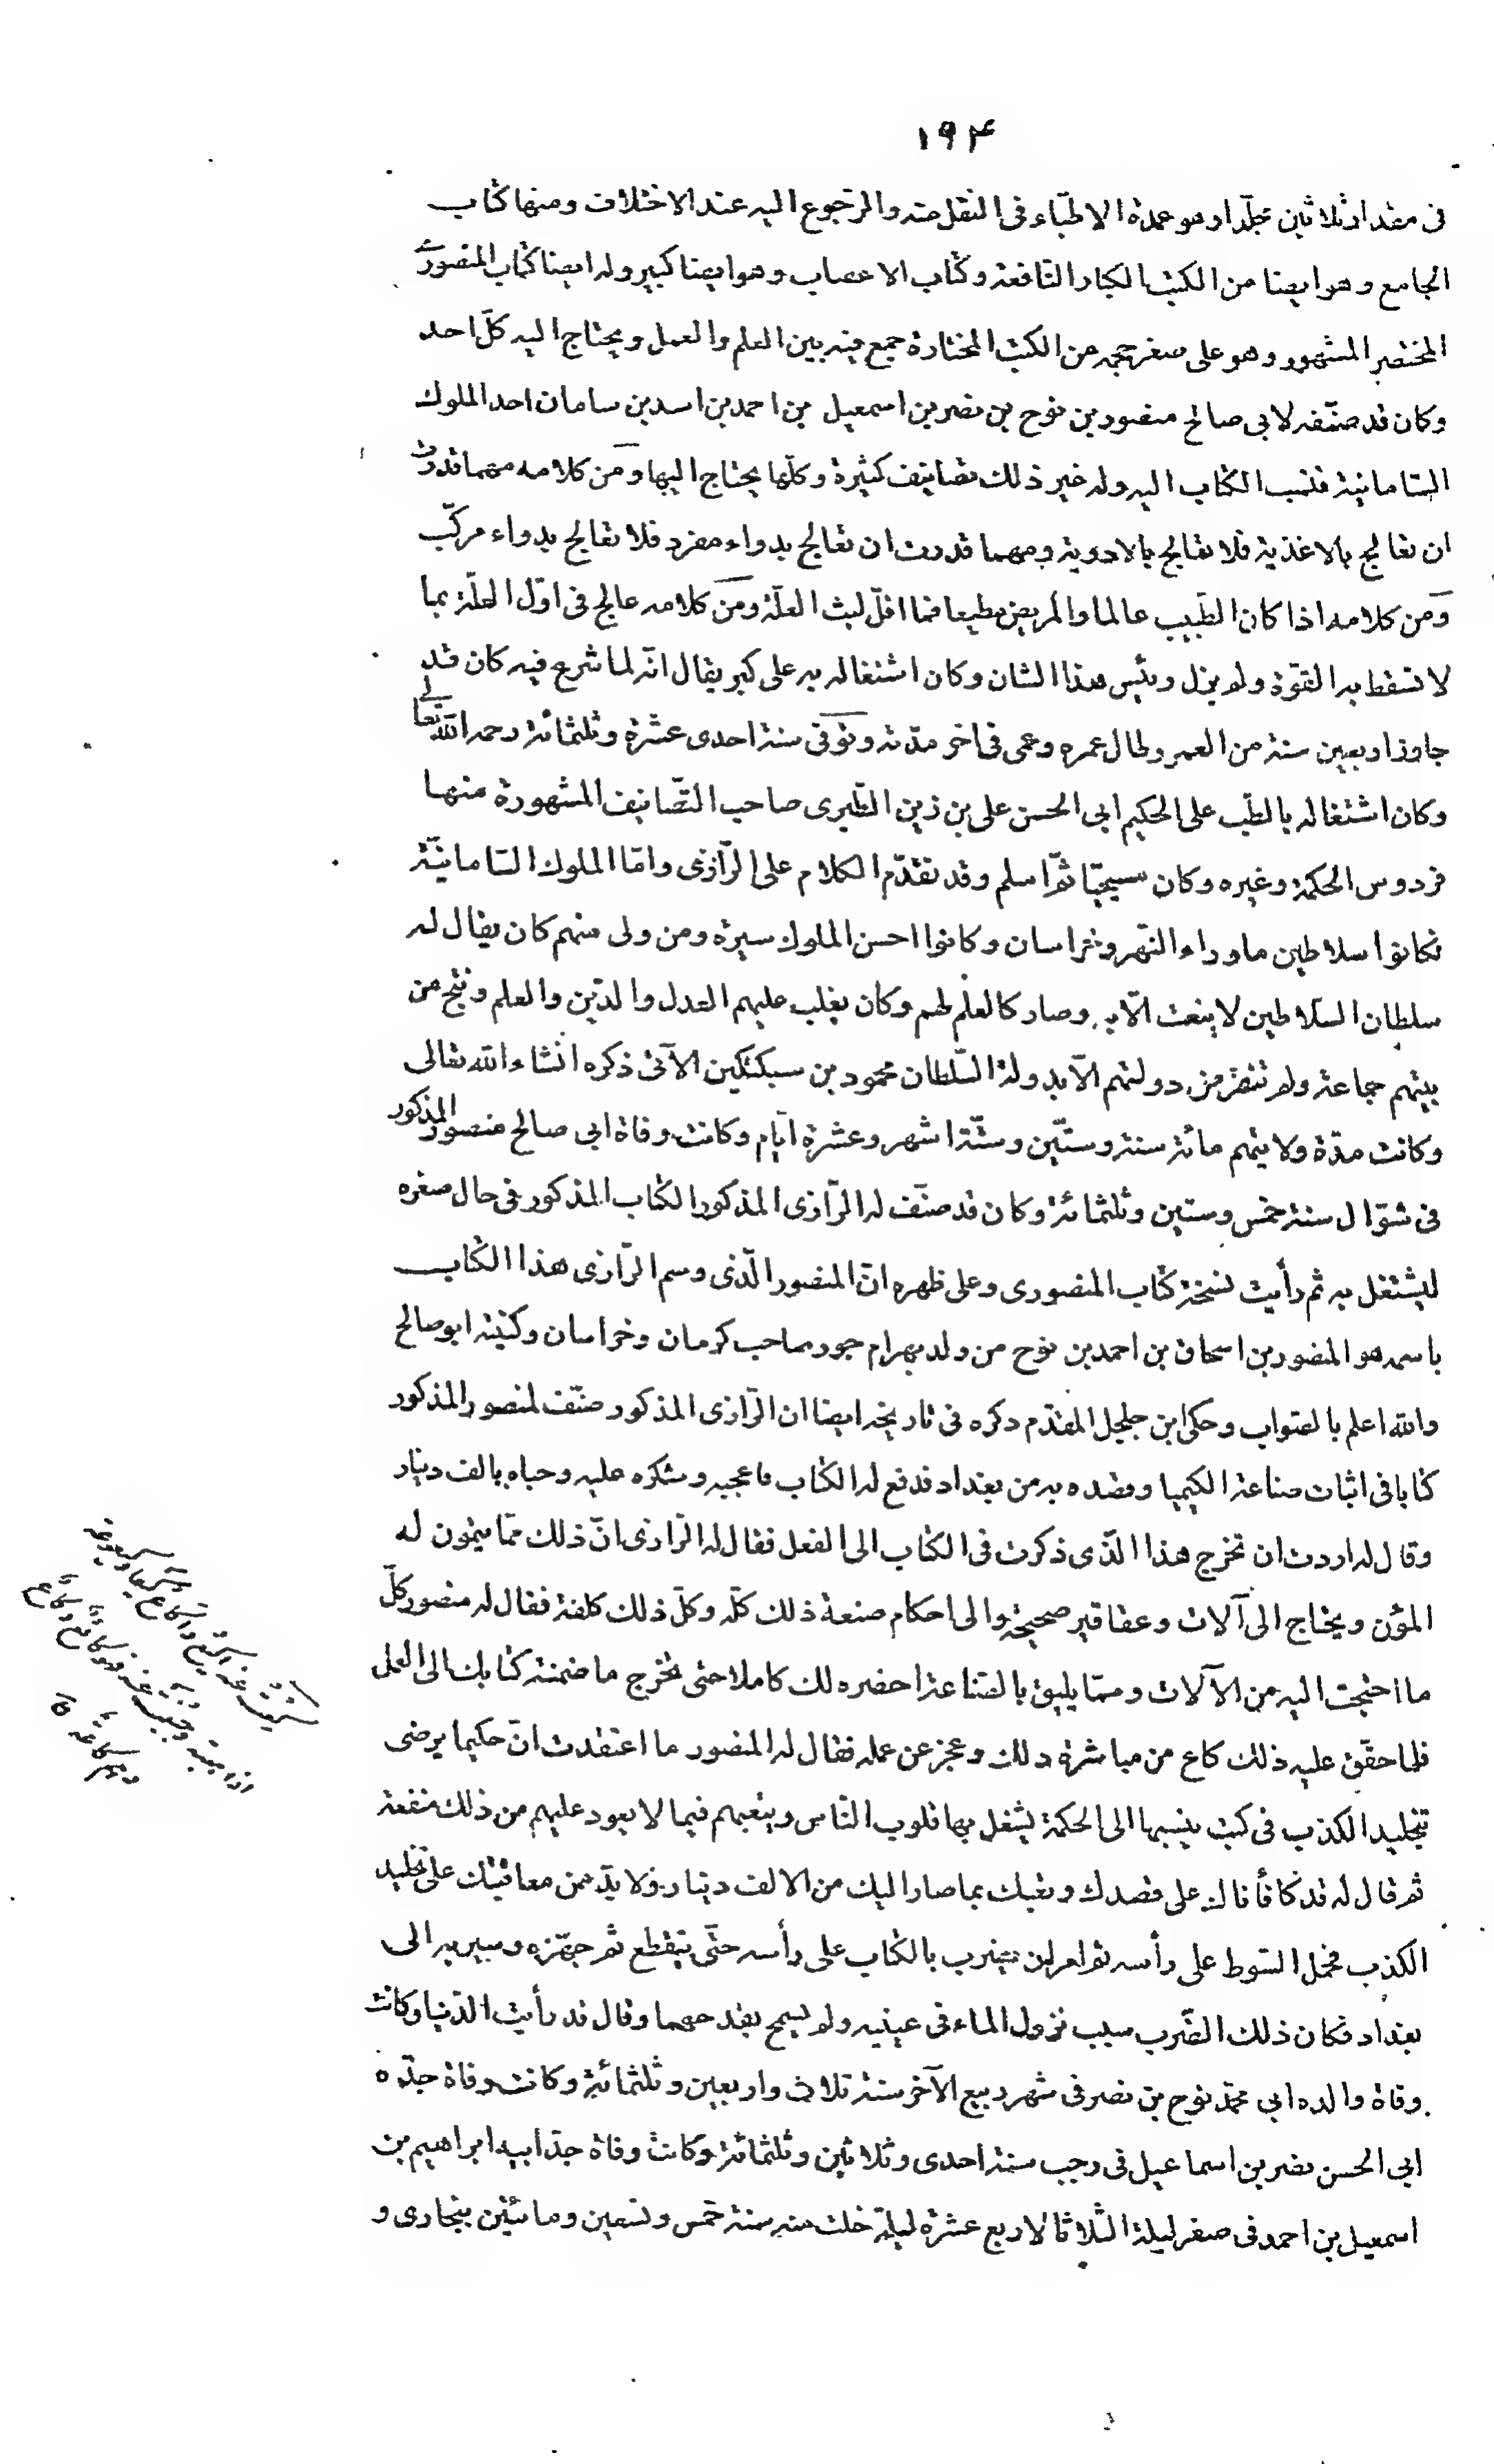 ١٩۴
فى مقدار ثلاثين مجلّدا وهو عمدة الاطبّاء فى النقل منه والرّجوع اليه عند الاختلاف ومنها كتاب
الجامع وهو ايضا من الكتب الكبار النّافعة وكتاب الاعصاب وهو ايضا كبير وله ايضا كتاب المنصورى
المختصر المشهور وهو على صغر حجمه من الكتب المختارة جمع فيه بين العلم والعمل ويحتاج اليه كلّ احد
وكان قد صنّفه لابى صالح منصور بن نوح بن نصر بن اسمعيل بن احمد بن اسد بن سامان احد الملوك
السّامانيّة فنسب الكتاب اليه وله غير ذلك تصانيف كثيرة وكلّها يحتاج اليها ومن كلامه مهما قدرت
ان تعالج بالاغذية فلا تعالج بالادوية ومهما قدرت ان تعالج بدواء مفرد فلا تعالج بدواء مركّب
ومن كلامه اذا كان الطّبيب عالما والمريض مطيعا فما اقلّ لبث العلّة ومن كلامه عالج فى اوّل العلّة بما
لا تسقط به القوّة ولم يزل رئيس هذا الشان وكان اشتغاله به على كبر يقال انّه لما شرع فيه كان قد
جاوز اربعين سنة من العمر وطال عمره وعمى فى اخر مدّته وتوفّى سنة احدى عشرة وثلثمائة رحمه الله تعالى
وكان اشتغاله بالطّب على الحكيم ابى الحسن على بن زين الطّبرى صاحب التّصانيف المشهورة منها
فردوس الحكمة وغيره وكان مسيحيّا ثمّ اسلم وقد تقدّم الكلام على الرّازى وامّا الملوك السّامانيّة
فكانوا سلاطين ماوراء النّهر وخراسان وكانوا احسن الملوك سيرة ومن ولى منهم كان يقال له
سلطان السّلاطين لا ينعت الّا به وصار كالعلم لهم وكان يغلب عليهم العدل والدّين والعلم ونتج من
بيتهم جماعة ولم تنقرض دولتهم الّا بدولة السّلطان محمود بن سبكتكين الآتى ذكره انشاء الله تعالى
وكانت مدّة ولايتهم مائة سنة وستّين وستّة اشهر وعشرة ايّام وكانت وفاة ابى صالح منصور المذكور
فى شوّال سنة خمس وستين وثلثمائة وكان قد صنّف له الرّازى المذكور الكتاب المذكور فى حال صغره
ليشتغل به ثم رأيت نسخة كتاب المنصورى وعلى ظهره انّ المنصور الّذى وسم الرّازى هذا الكتاب
باسمه هو المنصور بن اسحاق بن احمد بن نوح من ولد بهرام جور صاحب كرمان وخراسان وكنيته ابو صالح
والله اعلم بالصّواب وحكى ابن جلجل المقدّم ذكره فى تاريخه ايضا ان الرّازى المذكور صنّف لمنصور المذكور
كتابا فى اثبات صناعة الكيميا وقصده به من بغداد فدفع له الكتاب فاعجبه وشكره عليه وحباه بالف دينار
وقال له اردت ان تخرج هذا الّذى ذكرت فى الكتاب الى الفعل فقال له الرّازى انّ ذلك ممّا يتمون له
المؤن ويحتاج الى آلات وعقاقير صحيحة والى احكام صنعة ذلك كلّه وكلّ ذلك كلفة فقال له منصور كلّ
ما احتجت اليه من الآلات وممّا يليق بالصّناعة احضره لك كاملا حتى تخرج ما ضمنته كتابك الى العمل
فلما حقّق عليه ذلك كاع من مباشرة ذلك وعجز عن عمله فقال له المنصور ما اعتقدت انّ حكيما يرضى
بتخليد الكذب فى كتب ينسبها الى الحكمة يشغل بها قلوب النّاس ويتعبهم فيما لا يعود عليهم من ذلك منفعة
ثم قال له قد كافأناك على قصدك وتعبك بما صار اليك من الالف دينار ولا بدّ من معاقبتك على تخليد
الكذب فحمل السّوط على رأسه ثم امر ان يضرب بالكتاب على رأسه حتّى يتقطع ثم جهّزه وسير به الى
بغداد فكان ذلك الضّرب سبب نزول الماء فى عينيه ولم يسمح بقدحهما وقال قد رأيت الدّنيا وكانت
وفاة والده ابى محمّد نوح بن نصر فى شهر ربيع الآخر سنة ثلاث واربعين وثلثمائة وكانت وفاة جدّه
ابى الحسن نصر بن اسماعيل فى رجب سنة احدى وثلاثين وثلثمائة وكانت وفاة جدّ ابيه ابراهيم بن
اسمعيل بن احمد فى صفر ليلة الثّلاثا لاربع عشرة ليلة خلت منه سنة خمس وتسعين ومائتين ببخارى و